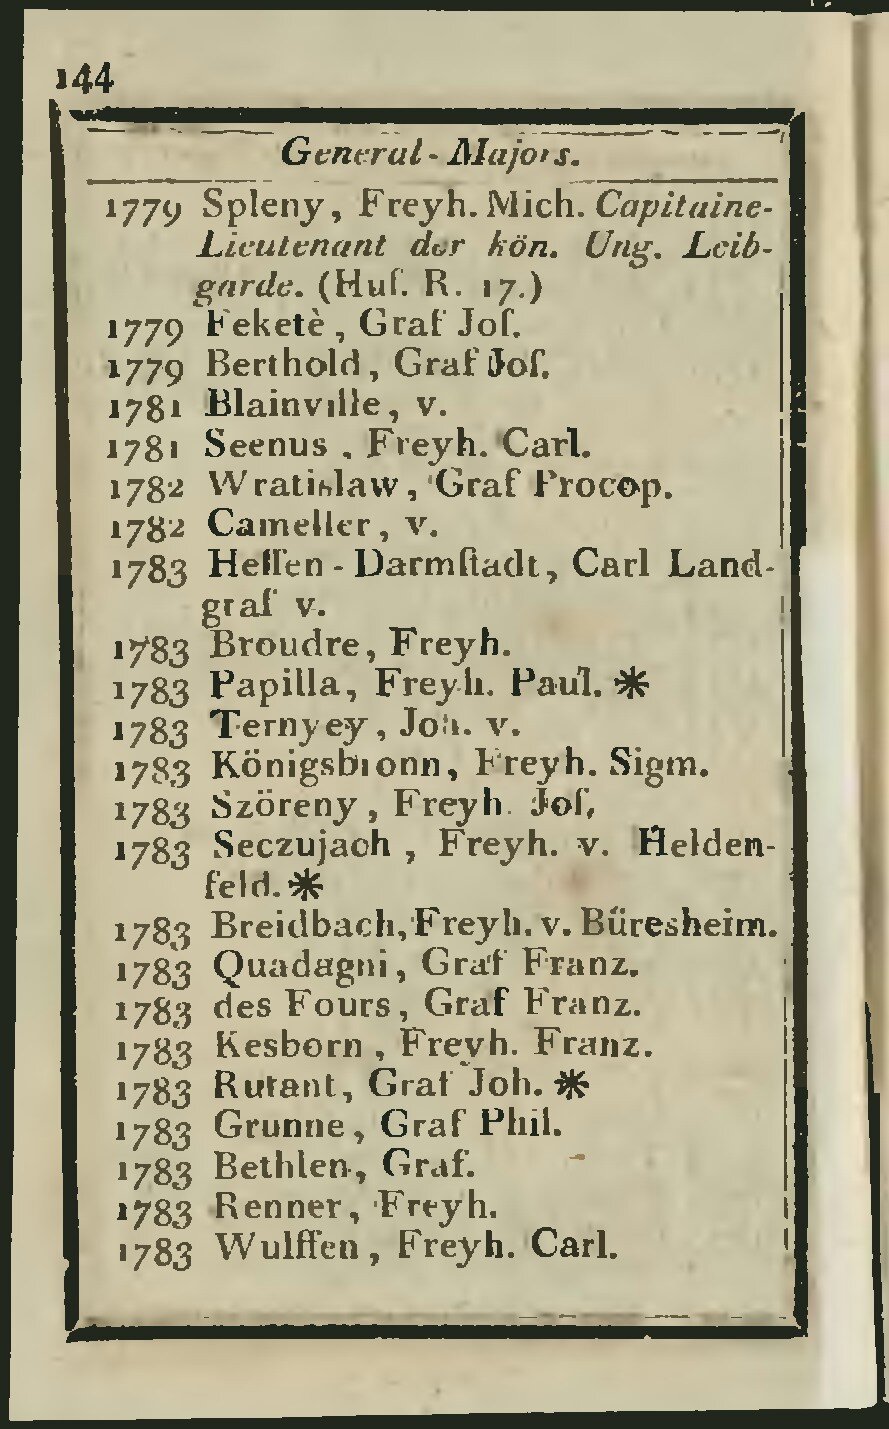 144
General-Majors.
1779 Spleny, Freyh. Mich. Capitaine-
Lieutenant der kön. Ung. Leib-
garde. (Huſ. R. 17.)
1779 Feketè, Graf Joſ.
1779 Berthold, Graf Joſ.
1781 Blainville, v.
1781 Seenus, Freyh. Carl.
1782 Wratislaw, Graf Procop.
1782 Cameller, v.
1783 Heſſen-Darmſtadt, Carl Land-
graf v.
1783 Broudre, Freyh.
1783 Papilla, Freyh. Paul. *
1783 Ternyey, Joh. v.
1783 Königsbronn, Freyh. Sigm.
1783 Szöreny, Freyh. Joſ.
1783 Seczujach, Freyh. v. Helden-
feld. *
1783 Breidbach, Freyh. v. Büresheim.
1783 Quadagni, Graf Franz.
1783 des Fours, Graf Franz.
1783 Kesborn, Freyh. Franz.
1783 Rutant, Graf Joh. *
1783 Grunne, Graf Phil.
1783 Bethlen, Graf.
1783 Renner, Freyh.
1783 Wulffen, Freyh. Carl.